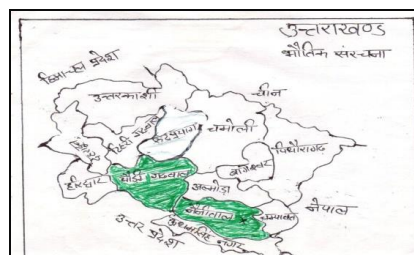 उत्तराखण्ड
भौतिक संरचना
हिमाचल प्रदेश
उत्तरकाशी
चीन
टिहरी गढ़वाल
रुद्रप्रयाग
चमोली
पिथौरागढ़
बागेश्वर
हरिद्वार
पौड़ी गढ़वाल
अल्मोड़ा
नैनीताल
चम्पावत
नेपाल
उत्तर प्रदेश
ऊधमसिंह नगर